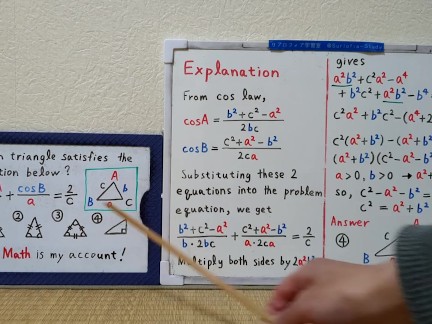 n triangle satisfies the
tion below?
+ cosB/a = 2/c
A
c b
B C
② ③ ④
Math is my account!
Explanation
From cos law,
cosA = b²+c²-a²/2bc
cosB = c²+a²-b²/2ca
Substituting these 2
equations into the problem
equation, we get
b²+c²-a²/b·2bc + c²+a²-b²/a·2ca = 2/c
Multiply both sides by 2a²b²
gives
a²b²+c²a²-a⁴
+b²c²+a²b²-b⁴
c²a²+b²c²-
c²(a²+b²)-(a²+b²
(a²+b²)(c²-a²-b²
a>0, b>0 → a²+
so, c²-a²-b²=
c²=a²+b²
Answer
④
c
B